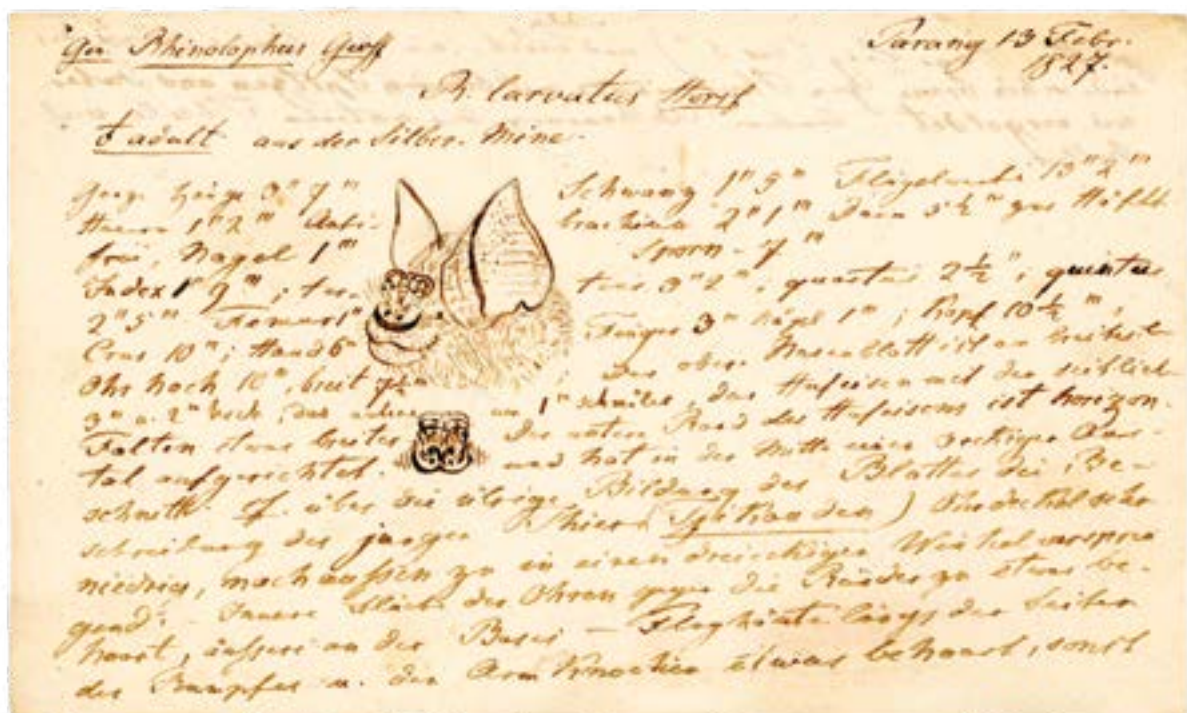 Gen Rhinolophus Geoff
Parang 13 Febr.
1827.
R. larvatus Horsf
adult aus der Silber-Mine.
Ganze Länge 3" 7'" Schwanz 1" 5'" Flügelweite 13" 2'"
1" 2'" Anti- brachium 2" 1'" Daum 5½'" zur Hälfte
frei, Nagel 1'" Sporn - 7'"
Index 1" 9'"; ter- tius 3" 2'", quartus 2½", quintus
2" 5'" Femur 1" Finger 3'" 1'"; Kopf 10½'",
Crus 10'"; Hand 6'" Das obere Nasenblatt ist am breitest
Ohr hoch 10'", breit 7½'" das Hufeisen mit den seitlich
3'" u. 2'" hoch, das um 1'" schmäler,
Falten etwas breiter Der untere Rand des Hufeisens ist horizon-
tal aufgerichtet. und hat in der Mitte einen eckigen Aus-
schnitt. über die übrige Bildung des Blattes die Be-
schreibung des jungen Thiers ( ) Ohrdeckel sehr
niedrig, nach aussen zu in einen dreieckigen Winkel vorsprin
gend. - Innere Fläche der Ohren gegen die Ränder zu etwas be-
haart, äussere an der Basis - Flughäute längs der Seiten
des Rumpfes u. der Armknochen etwas behaart, sonst